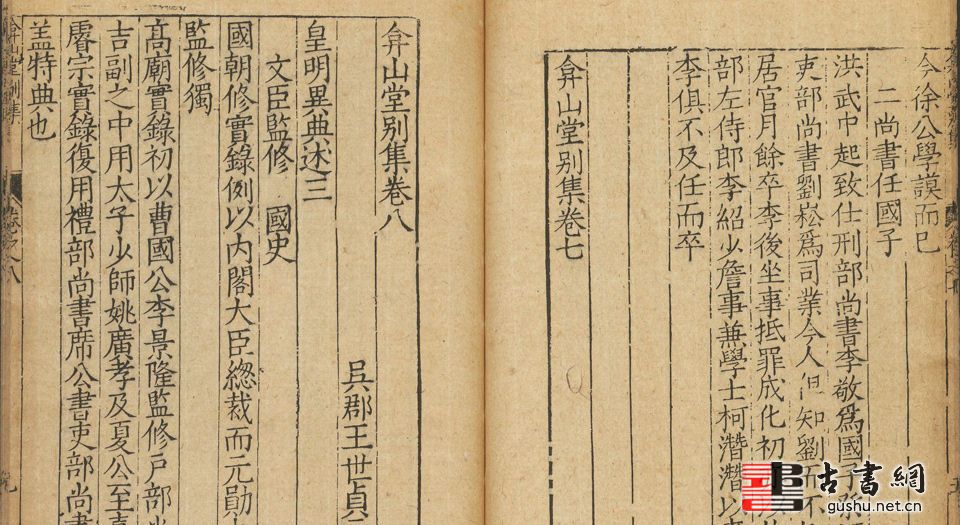 今徐公學謨而已
二尚書任國子
洪武中起致仕刑部尚書李敬爲國子
吏部尚書劉崧爲司業今人但知劉而不
居官月餘卒李後坐事抵罪成化初
部左侍郎李紹少詹事兼學士柯潛潛以
李俱不及任而卒
弇山堂别集卷七
弇山堂别集卷八
吳郡王世貞
皇明異典述三
文臣監修 國史
國朝修實錄例以內閣大臣總裁而元勛
監修獨
高廟實錄初以曹國公李景隆監修戶部
吉副之中用太子少師姚廣孝及夏公至
睿宗實錄復用禮部尚書席公書吏部尚
盖特典也
卷之八
古書網
gushu.net.cn